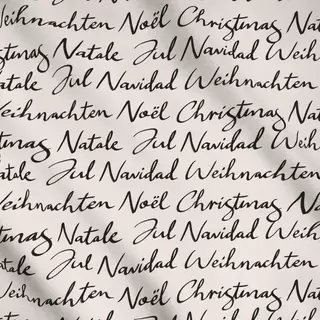 Weihnachten Noël Christmas Nat
stmas Natale Jul Navidad Weih
atale Jul Navidad Weihnachten
Weihnachten Noël Christmas Nat
tmas Natale Jul Navidad Weih
atale Jul Navidad Weihnachten
Weihnachten Noël Christmas Na
tmas Natale Jul Navidad Weih
atale Jul Navidad Weihnachten
Weihnachten Noël Christmas Nat